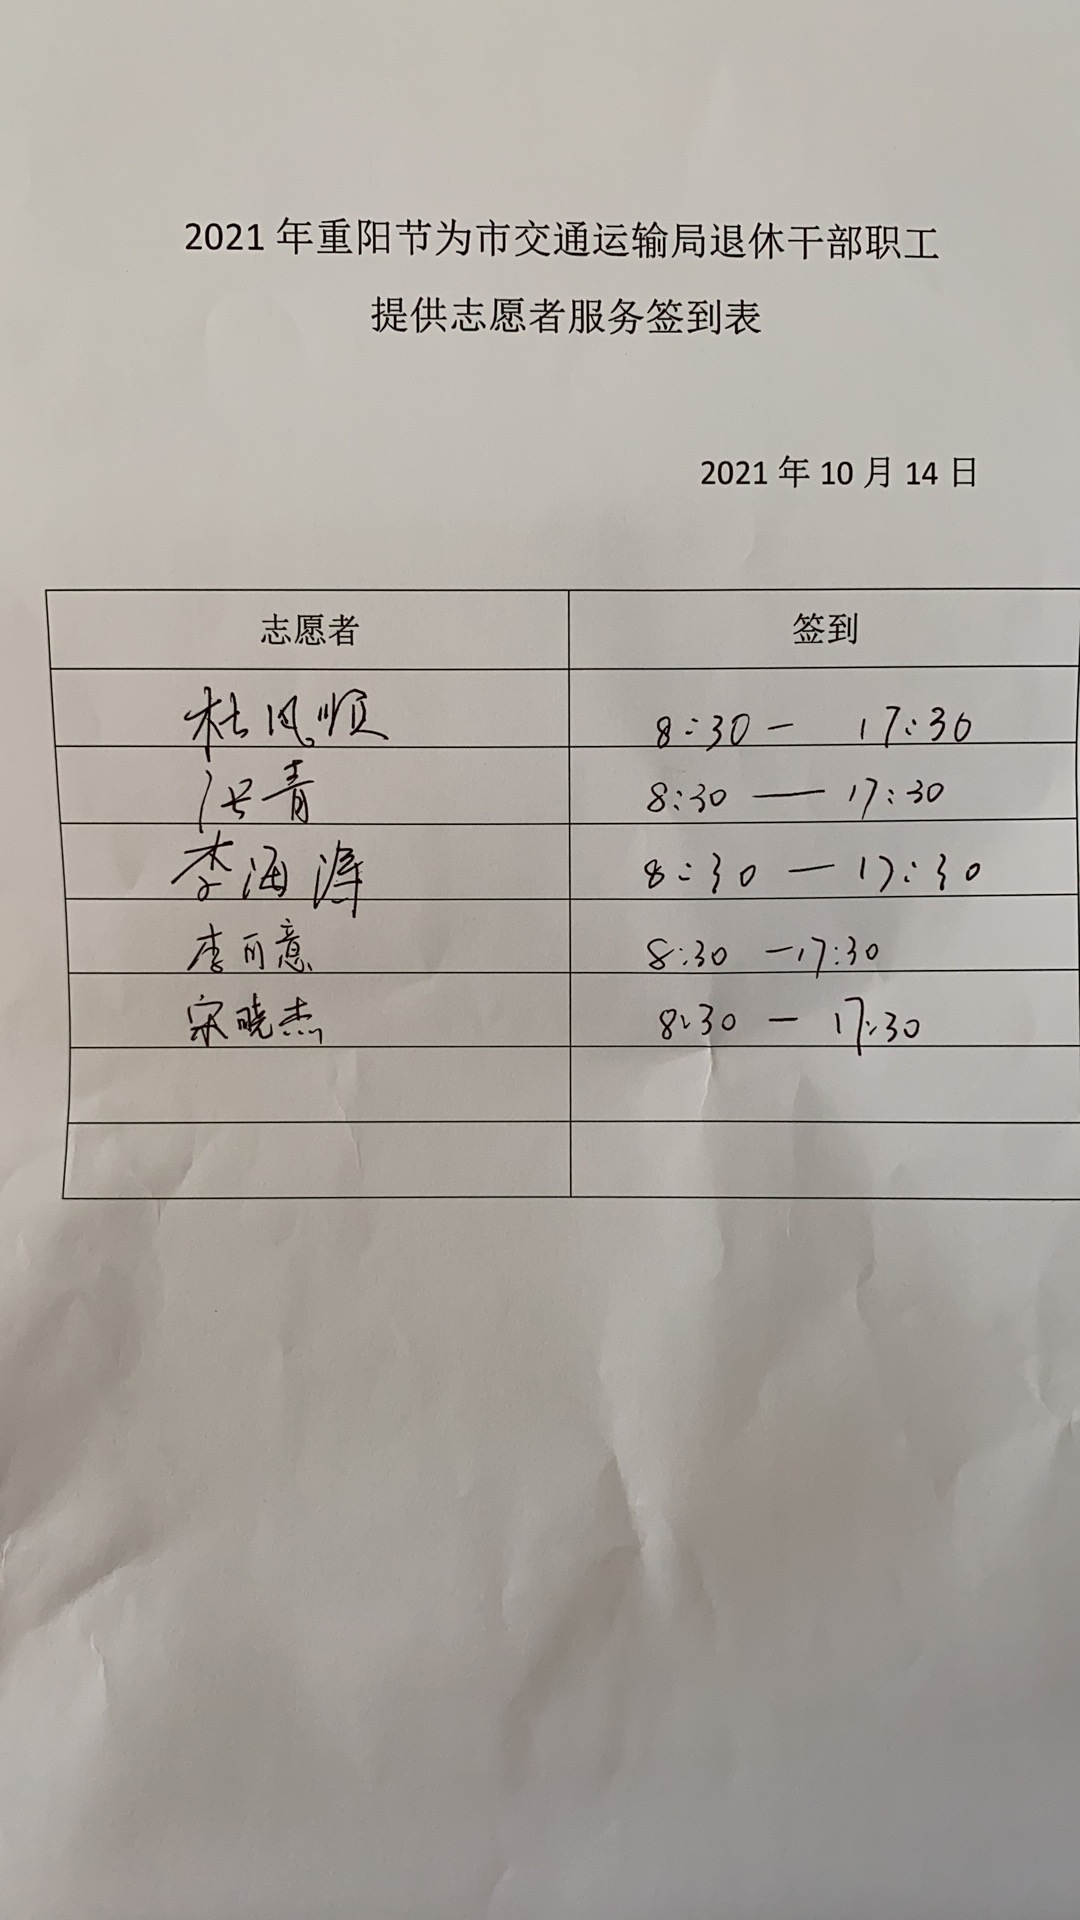 2021 年重阳节为市交通运输局退休干部职工
提供志愿者服务签到表
2021 年 10 月 14 日
志愿者 签到
杜风顺 8:30 — 17:30
青 8:30 — 17:30
李海 8:30 — 17:30
李可意 8:30 — 17:30
宋晓杰 8:30 — 17:30